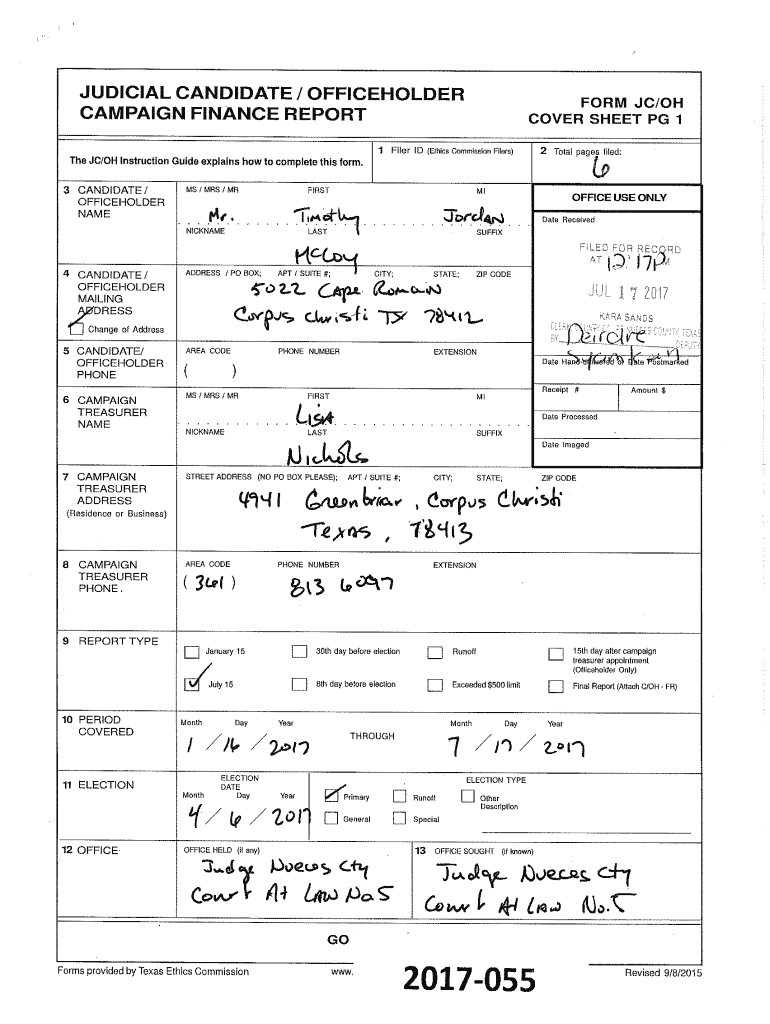 JUDICIAL CANDIDATE / OFFICEHOLDER
CAMPAIGN FINANCE REPORT
FORM JC/OH
COVER SHEET PG 1
The JC/OH Instruction Guide explains how to complete this form.
1 Filer ID (Ethics Commission Filers)
2 Total pages filed:
6
3 CANDIDATE / OFFICEHOLDER NAME
MS / MRS / MR FIRST MI
Mr. Timothy Jordan
NICKNAME LAST SUFFIX
McCoy
OFFICE USE ONLY
Date Received
FILED FOR RECORD
AT 12:17PM
JUL 17 2017
KARA SANDS
CLERK COUNTY NUECES COUNTY, TEXAS
BY Deirdre DEPUTY
Date Hand-delivered or Date Postmarked
Receipt # Amount $
Date Processed
Date Imaged
4 CANDIDATE / OFFICEHOLDER MAILING ADDRESS
Change of Address
ADDRESS / PO BOX; APT / SUITE #; CITY; STATE; ZIP CODE
5022 Cape Romain
Corpus Christi TX 78412
5 CANDIDATE/ OFFICEHOLDER PHONE
AREA CODE PHONE NUMBER EXTENSION
( )
6 CAMPAIGN TREASURER NAME
MS / MRS / MR FIRST MI
Lisa
NICKNAME LAST SUFFIX
Nichols
7 CAMPAIGN TREASURER ADDRESS
(Residence or Business)
STREET ADDRESS (NO PO BOX PLEASE); APT / SUITE #; CITY; STATE; ZIP CODE
4941 Greenbriar, Corpus Christi
Texas, 78413
8 CAMPAIGN TREASURER PHONE
AREA CODE PHONE NUMBER EXTENSION
(361) 813 6097
9 REPORT TYPE
January 15 30th day before election Runoff 15th day after campaign treasurer appointment (Officeholder Only)
July 15 8th day before election Exceeded $500 limit Final Report (Attach C/OH - FR)
10 PERIOD COVERED
Month Day Year Month Day Year
1 / 16 / 2017 THROUGH 7 / 17 / 2017
11 ELECTION
ELECTION DATE
Month Day Year
4 / 6 / 2017
ELECTION TYPE
Primary Runoff Other Description
General Special
12 OFFICE
OFFICE HELD (if any)
Judge Nueces Cty
Court At Law No 5
13 OFFICE SOUGHT (if known)
Judge Nueces Cty
Court At Law No. 5
GO
Forms provided by Texas Ethics Commission
www.
2017-055
Revised 9/8/2015